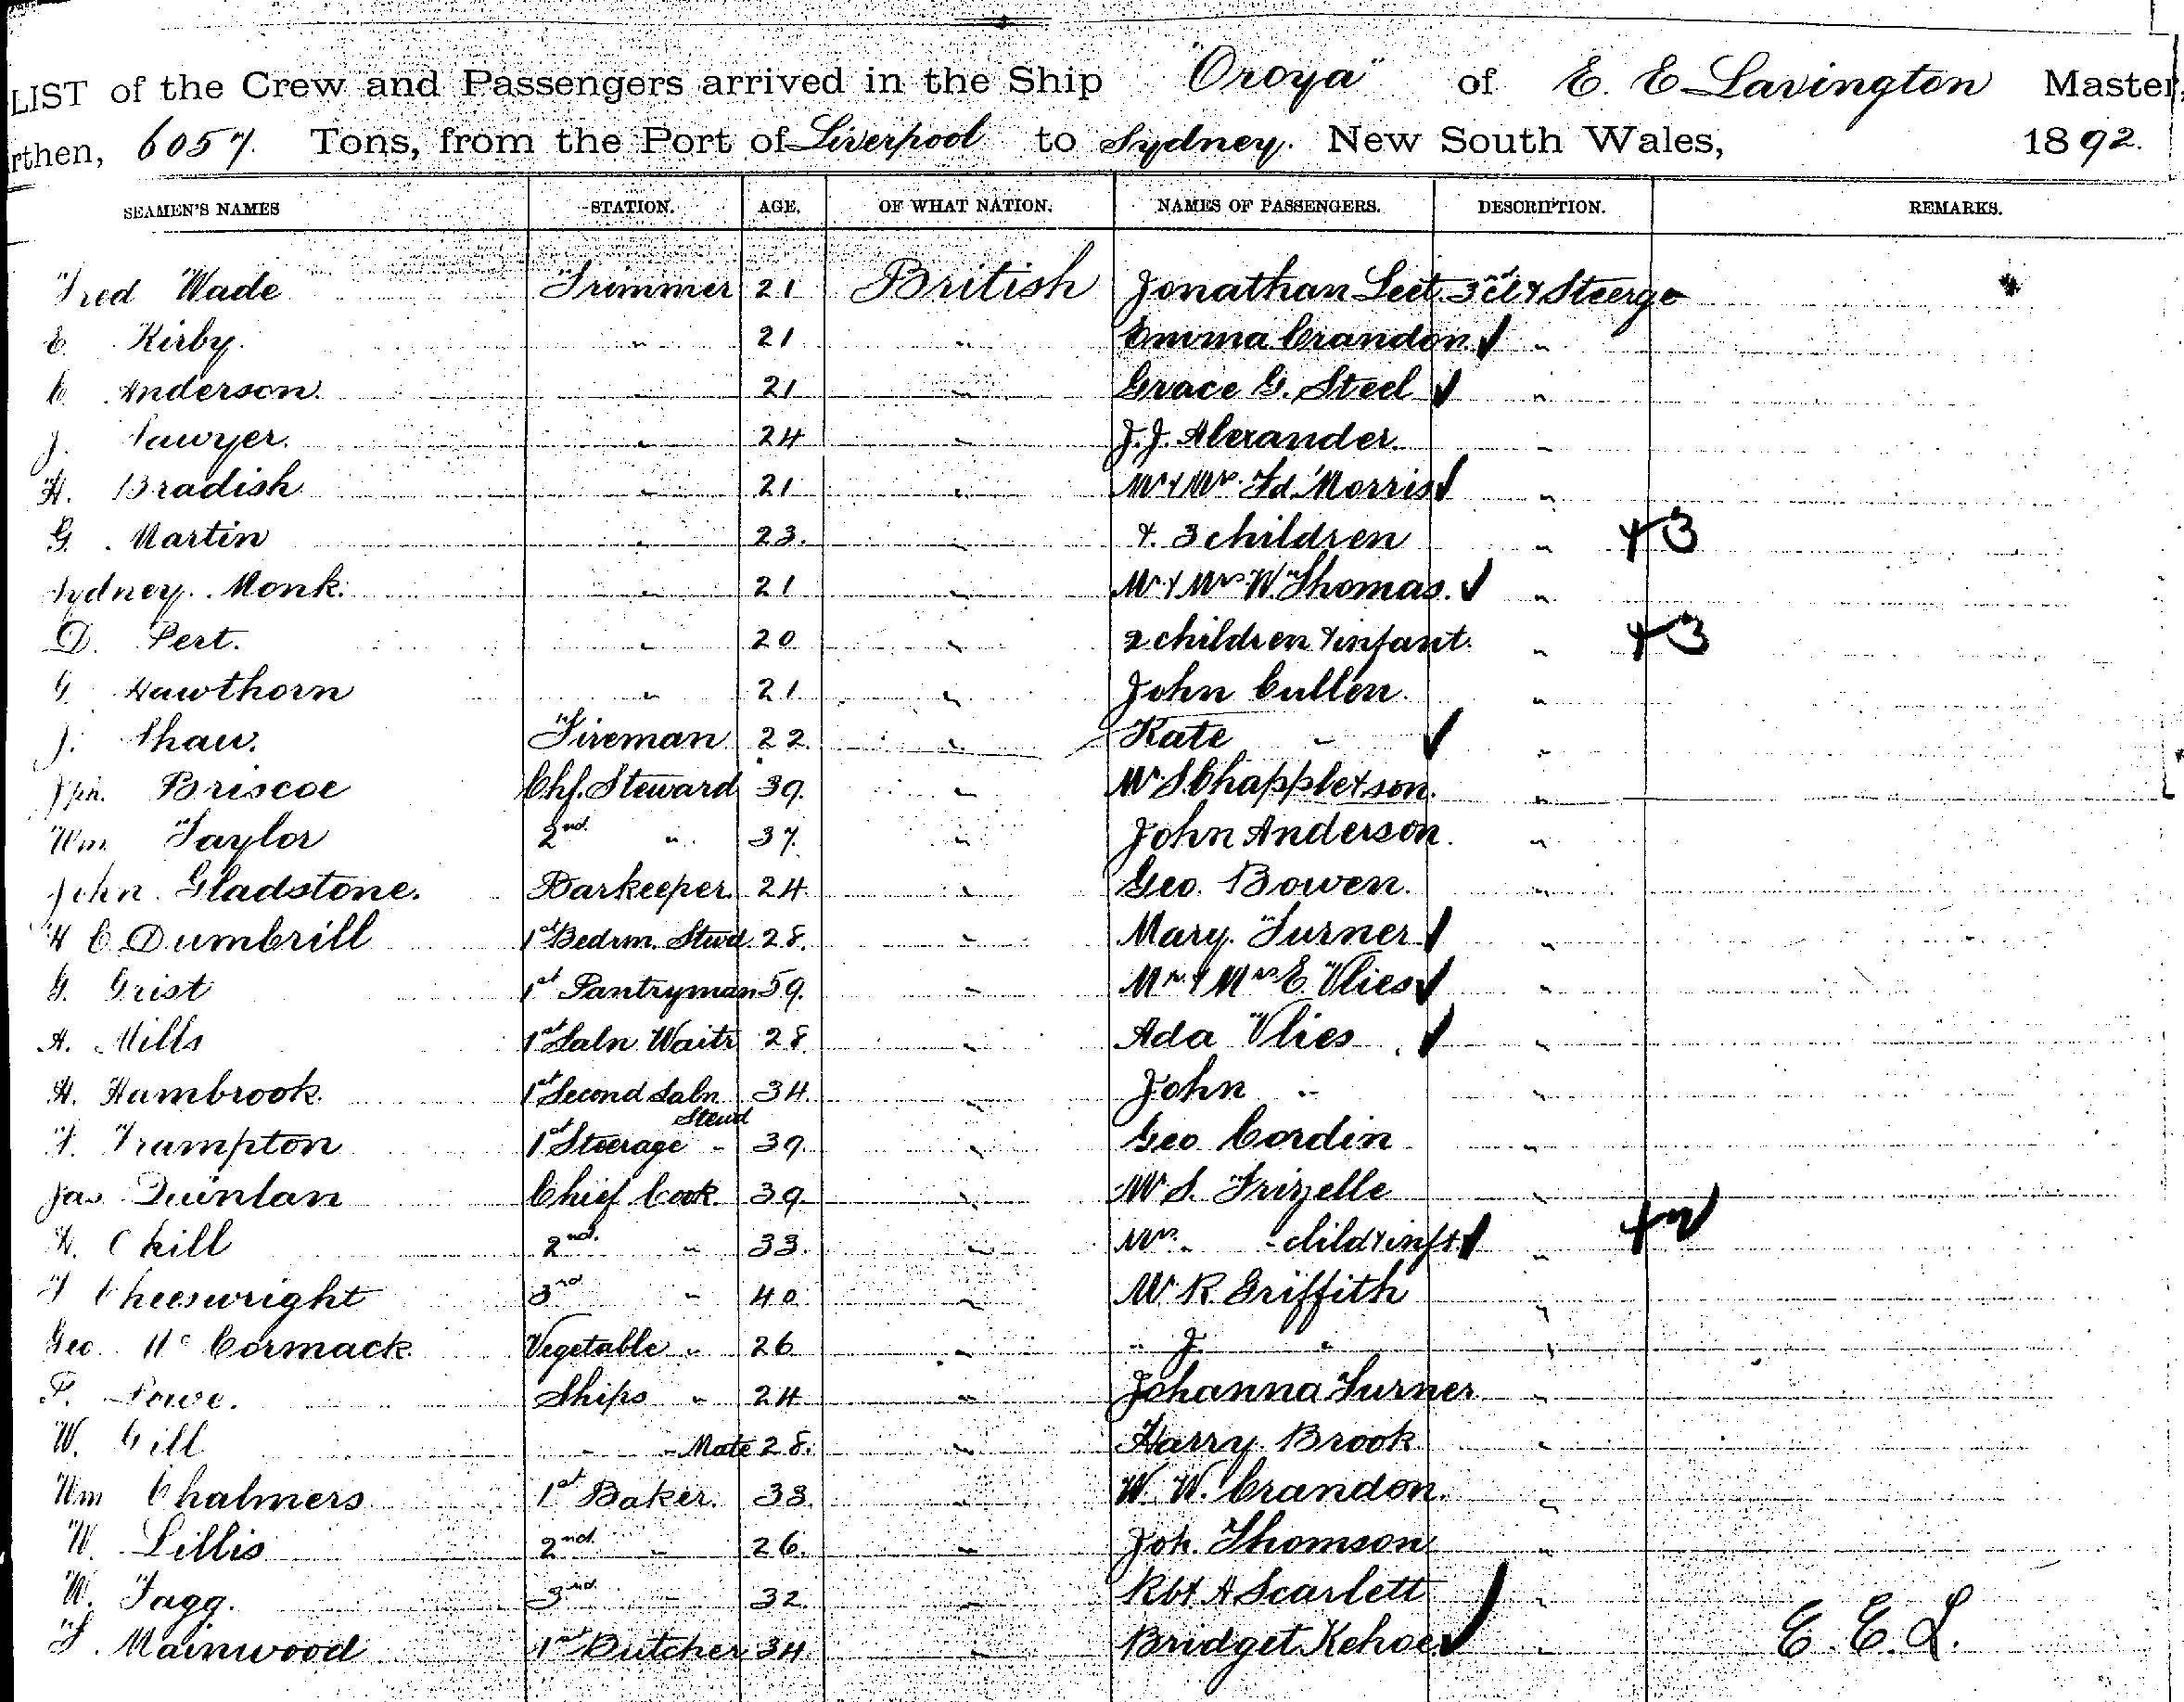 LIST of the Crew and Passengers arrived in the Ship "Oroya" of E. E Lavington Master,
rthen, 6057. Tons, from the Port of Liverpool to Sydney. New South Wales, 1892.
SEAMEN'S NAMES STATION. AGE. OF WHAT NATION. NAMES OF PASSENGERS. DESCRIPTION. REMARKS.
Fred Wade Trimmer 21 British Jonathan Leet 3rd cl & Steerge
E. Kirby. " 21 " Emma Crandon. ✓ "
C. Anderson. " 21 " Grace G. Steel ✓ "
J. Sawyer. " 24 " J. J. Alexander. "
H. Bradish " 21 " Mr & Mrs Fd. Morris ✓ "
G. Martin " 23. " & 3 children " +3
Sydney. Monk. " 21 " Mr & Mrs W. Thomas. ✓ "
D. Pert. " 20 " 2 children & infant. " +3
G. Hawthorn " 21 " John Cullen. "
J. Shaw. Fireman 22. " Kate " ✓ "
Jph. Briscoe Chf. Steward 39. " Mr S. Chapple & son. "
Wm Taylor 2nd. " 37. " John Anderson. "
John Gladstone. Barkeeper. 24. " Geo. Bowen. "
H C. Dumbrill 1st Bedrm. Stwd 28. " Mary. Turner ✓ "
G. Grist 1st Pantryman 59. " Mr & Mrs E. Vlies ✓ "
A. Mills 1st Saln Waitr 28 " Ada Vlies ✓ "
H. Hambrook. 1st Second Saln Stewd 34. " John " "
F. Frampton 1st Steerage " 39. " Geo Cordin "
Jas Quinlan Chief Cook. 39. " Mr S. Frizelle "
H. Chill 2nd. " 33. " Mrs. " child & inft. ✓ " +2 ✓
T Cheeswright 3rd " 40 " Mr R Griffith "
Geo. Mc Cormack. Vegetable " 26 " " J " "
P. Ships " 24 " Johanna Turner "
W. Gill " " Mate 28. " Harry. Brook. "
Wm Chalmers 1st Baker. 33. " W. W. Crandon. "
W. Lillis 2nd. " 26. " Joh. Thomson "
W. Fagg. 3rd " 32. " Rbt A Scarlett "
F. Mainwood 1st Butcher 34. " Bridget Kehoe. ✓ " E. E. L.